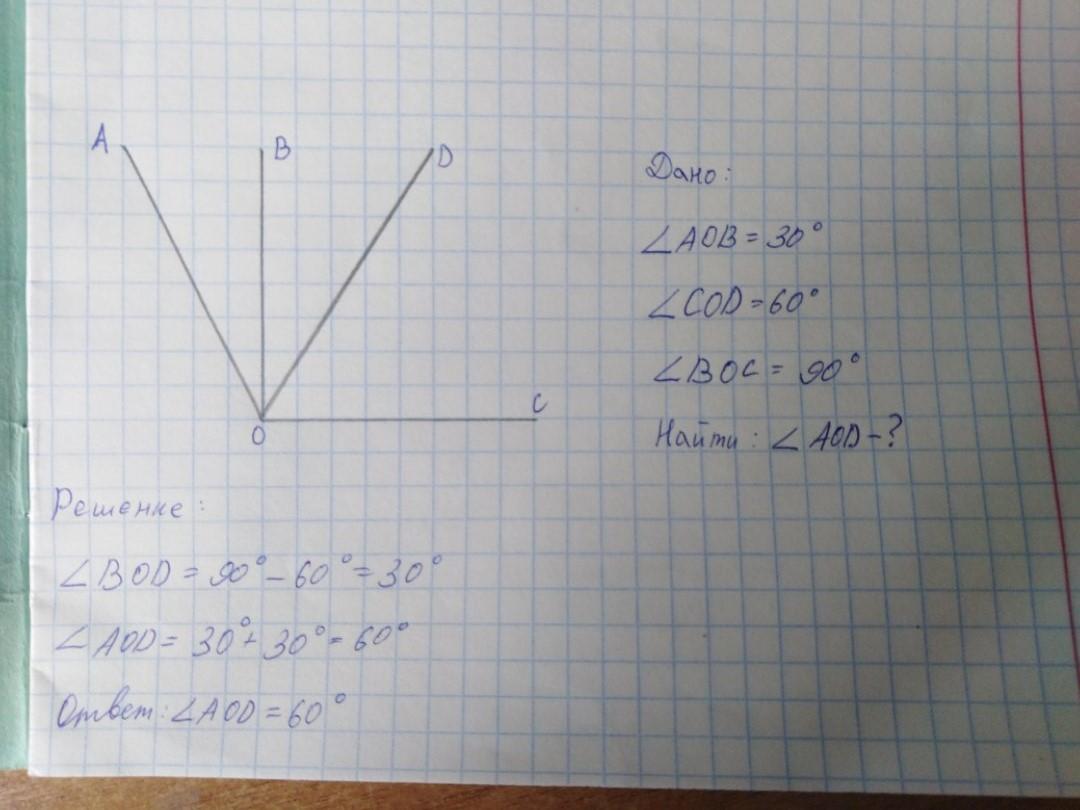 A B D
C
O
Дано:
∠AOB = 30°
∠COD = 60°
∠BOC = 90°
Найти: ∠AOD - ?
Решение:
∠BOD = 90° - 60° = 30°
∠AOD = 30° + 30° = 60°
Ответ: ∠AOD = 60°